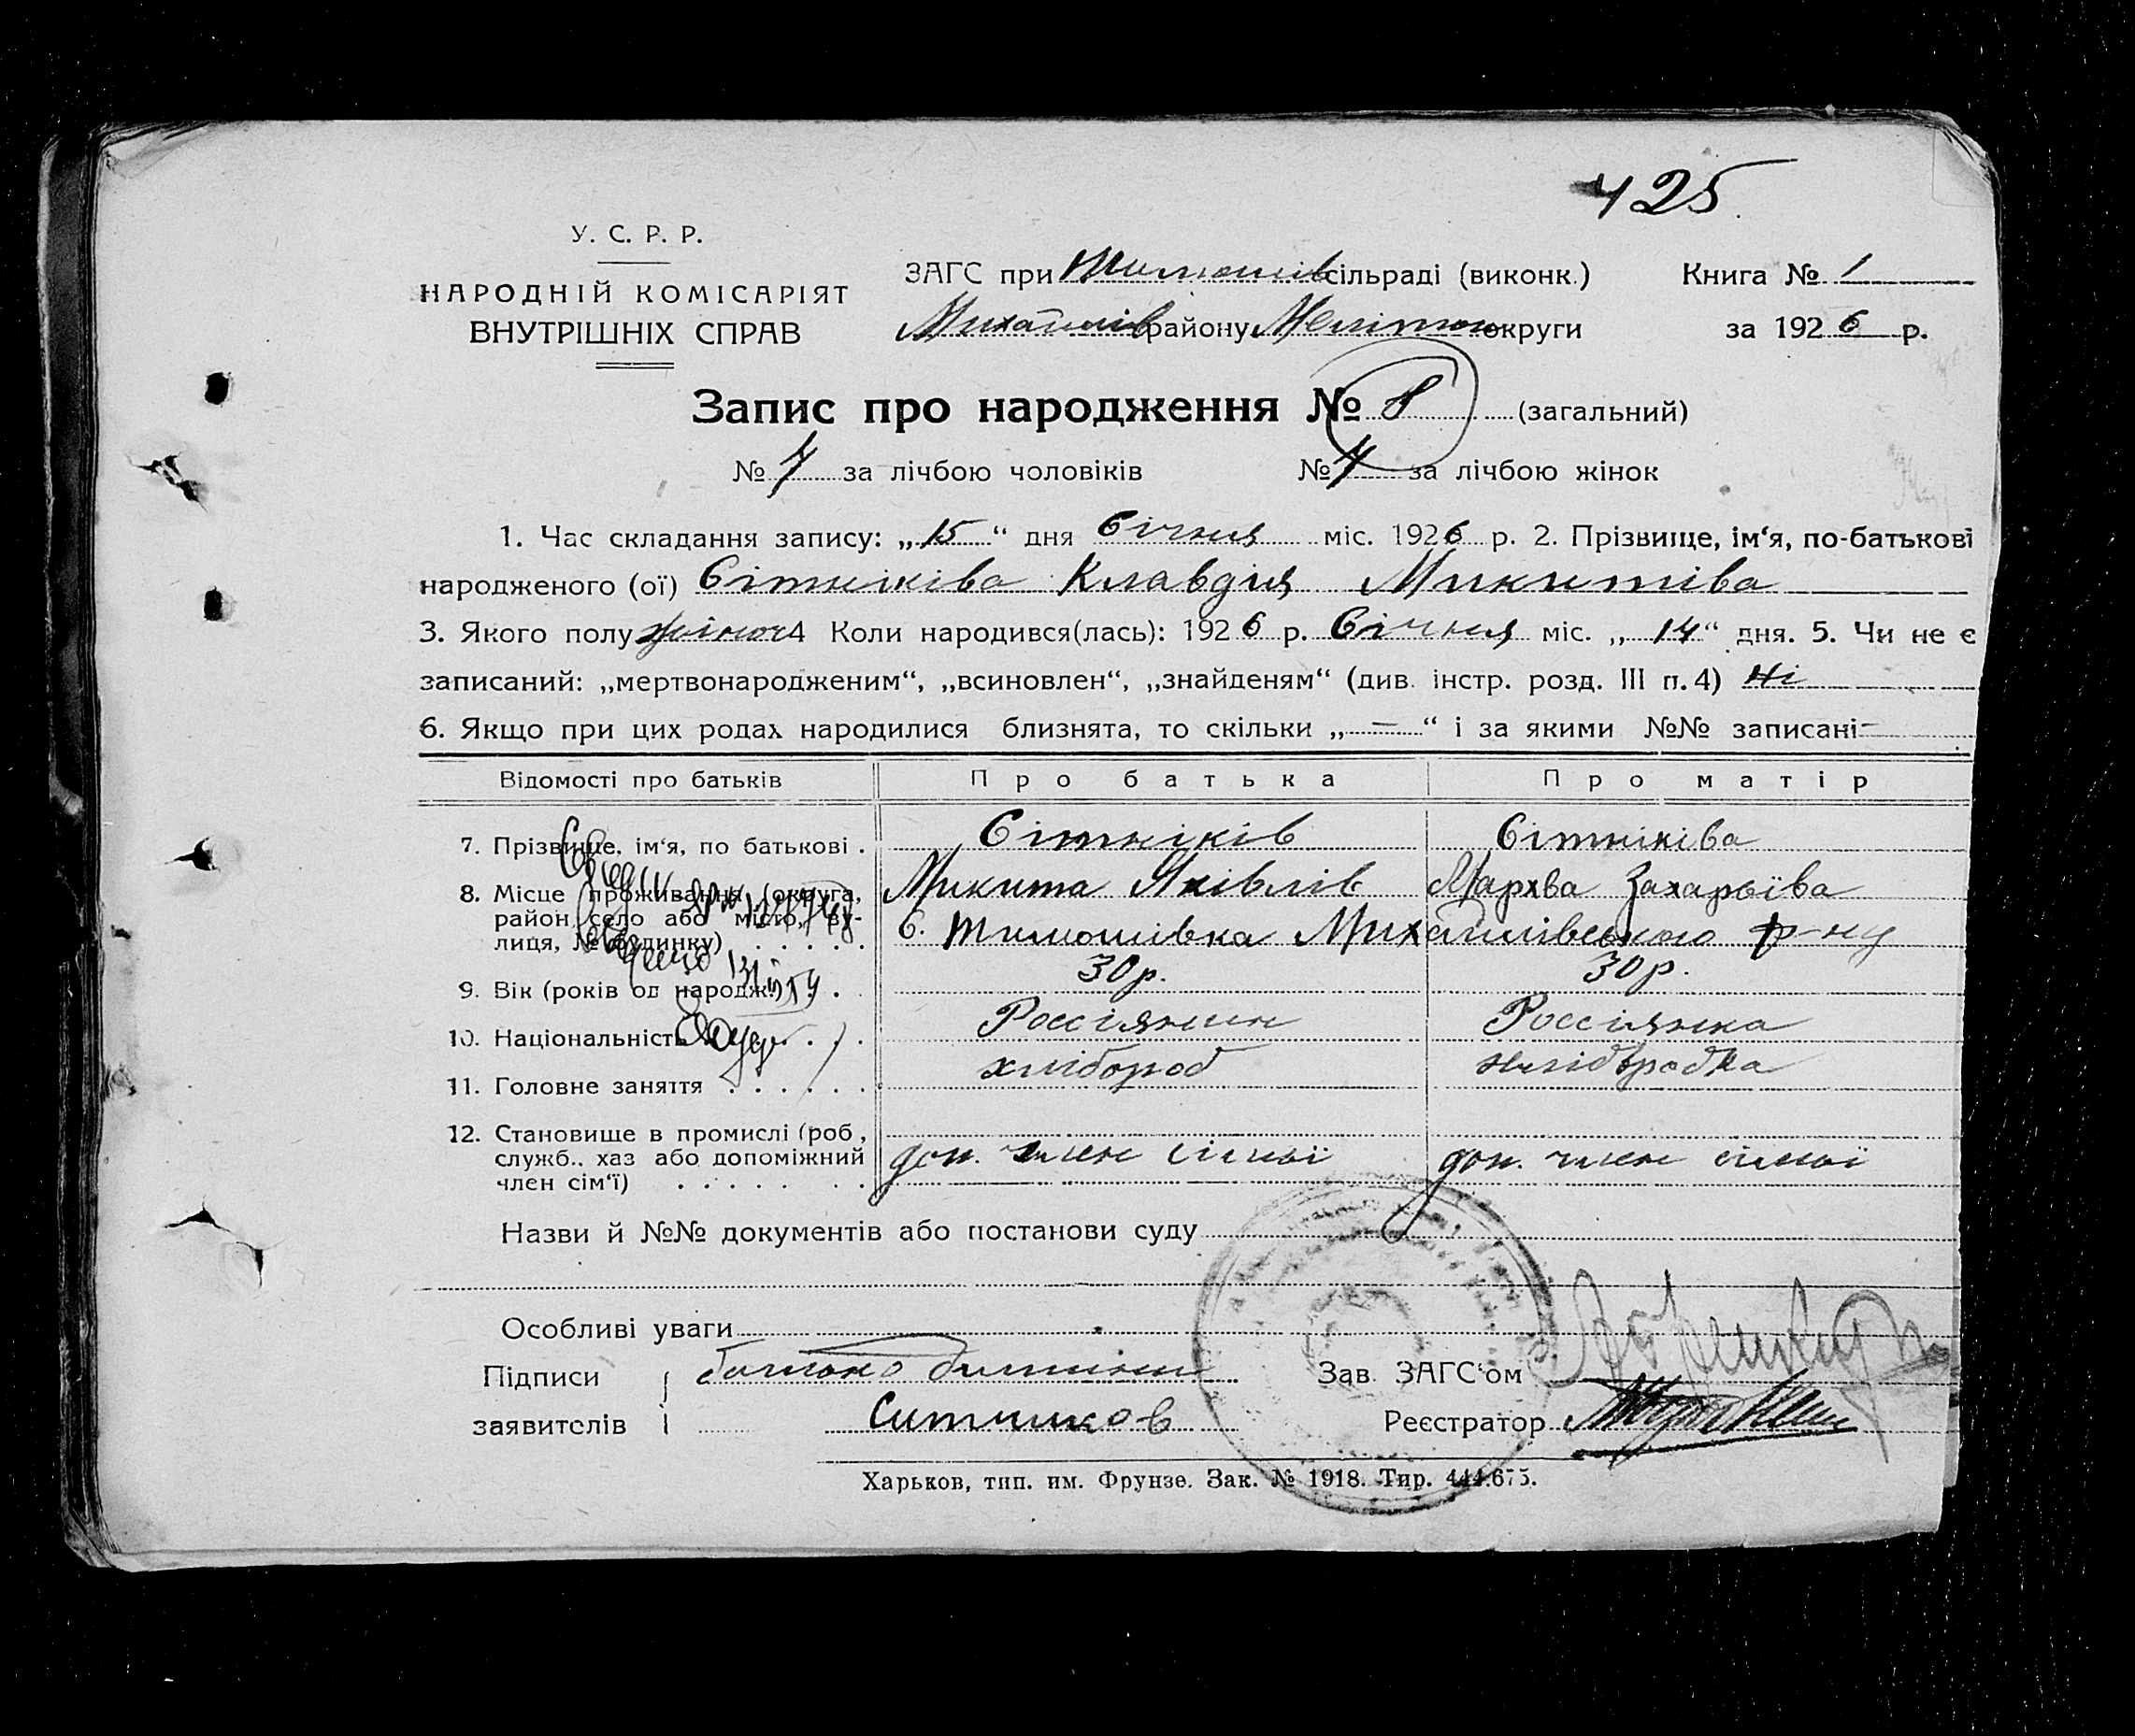 425
У. С. Р. Р.
НАРОДНІЙ КОМІСАРІЯТ
ВНУТРІШНІХ СПРАВ
ЗАГС при Тимошів сільраді (виконк.) Книга № 1
Михайлів району Мелітоп округи за 1926 р.
Запис про народження № 8 (загальний)
№ 4 за лічбою чоловіків № 4 за лічбою жінок
1. Час складання запису: „15“ дня Січня міс. 1926 р. 2. Прізвище, ім‘я, по-батькові
народженого (ої) Сітніківа Клавдія Микитіва
3. Якого полу жіноч 4 Коли народився(лась): 1926 р. Січня міс. „14“ дня. 5. Чи не є
записаний: „мертвонародженим“, „всиновлен“, „знайденям“ (див. інстр. розд. III п. 4) Ні
6. Якщо при цих родах народилися близнята, то скільки „ — “ і за якими №№ записані —
Відомості про батьків Про батька Про матір
7. Прізвище, ім‘я, по батькові . Сітніків Сітніківа
8. Місце проживання (округа, Микита Яківлів Мархва Захарьїва
район, село або місто, ву-
лиця, № будинку) . . . . . с. Тимошівка Михайлівського р-ну
9. Вік (років од народж.) . . 30 р. 30 р.
10. Національність . . . Россіянин Россіянка
11. Головне заняття . . . . . . хлібороб хліборобка
12. Становище в промислі (роб,
служб., хаз або допоміжний доп. член сімьї доп. член сімьї
член сім‘ї) . . . . . . .
Назви й №№ документів або постанови суду
Особливі уваги
Підписи батько дитини Зав. ЗАГС‘ом
заявителів Ситников Реєстратор
Харьков, тип. им. Фрунзе. Зак. № 1918. Тир. 444.675.